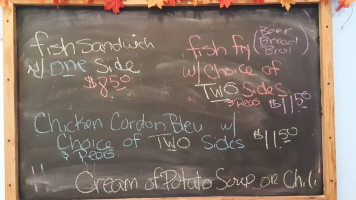 fish sandwich
w/ ONE Side
$8.50
fish fry
(Beer
Bread
Broil)
w/ Choice of
TWO Sides
& Pears
$11.50
Chicken Cordon Bleu w/
Choice of TWO Sides
& Pears
$11.50
Cream of Potato Soup or Chili